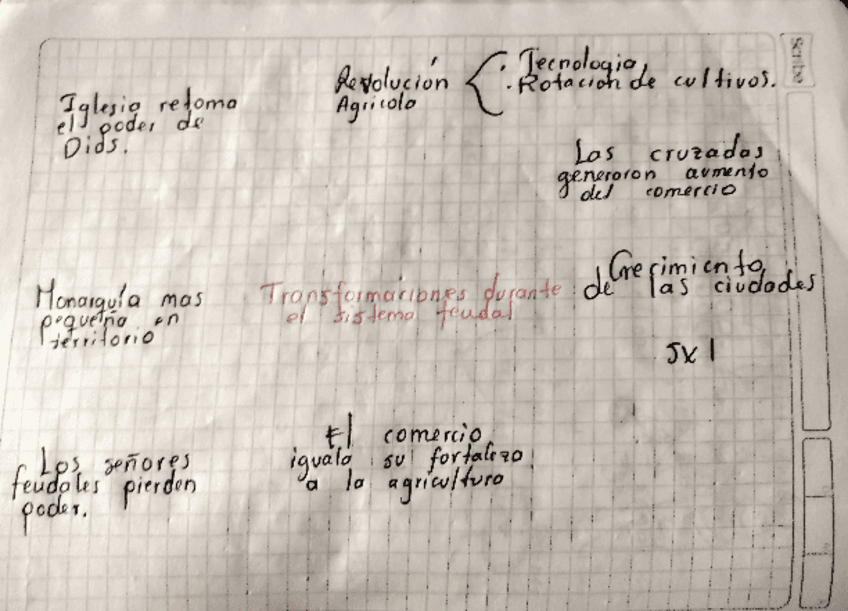 Scribe
Revolución
Agricola
· Tecnologia,
· Rotación de cultivos.
Iglesia retoma
el poder de
Dios.
Las cruzadas
generaron aumento
del comercio
Crecimiento
de las ciudades
SX I
Transformaciones durante
el sistema feudal
Monarquía mas
pequeña en
territorio
El comercio
iguala su fortaleza
a la agricultura
Los señores
feudales pierden
poder.